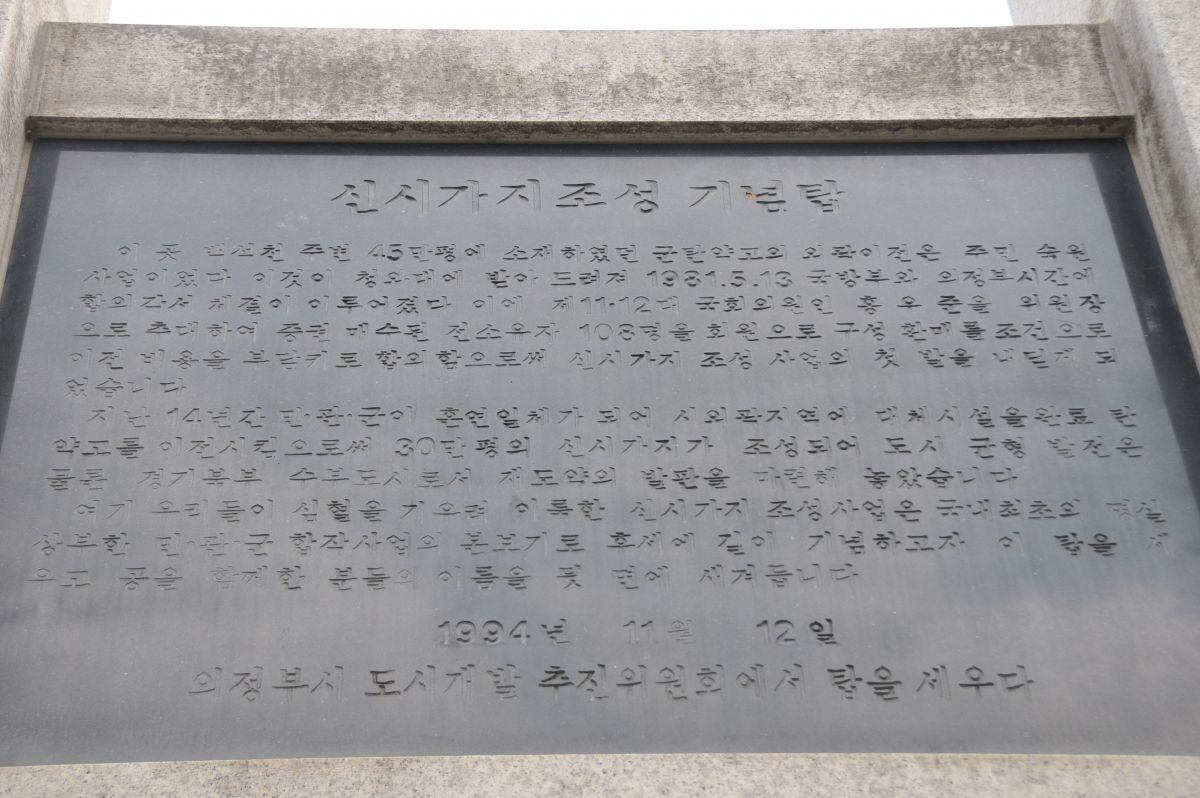 신시가지조성 기념탑
이 곳 백석천 주변 45만평에 소재하였던 군탄약고의 외곽이전은 주민 숙원
사업이었다 이것이 청와대에 받아 드려져 1981.5.13 국방부와 의정부시간에
합의각서 체결이 이루어졌다 이에 제11·12대 국회의원인 홍 우 준을 위원장
으로 추대하여 증권 매수된 전소유자 108명을 회원으로 구성 환매를 조건으로
이전 비용을 부담키로 합의함으로써 신시가지 조성 사업의 첫 발을 내딛게 되
었습니다
지난 14년간 민·관·군이 혼연일체가 되어 시외곽지역에 대체시설을완료 탄
약고를 이전시킴으로써 30만평의 신시가지가 조성되어 도시 균형 발전은
물론 경기북부 수부도시로서 재도약의 발판을 마련해 놓았습니다
여기 우리들이 심혈을 기우려 이룩한 신시가지 조성사업은 국내최초의 명실
상부한 민·관·군 합작사업의 본보기로 후세에 길이 기념하고자 이 탑을 세
우고 공을 함께한 분들의 이름을 뒷 면에 새겨둡니다
1994년 11월 12일
의정부시 도시개발 추진위원회에서 탑을 세우다